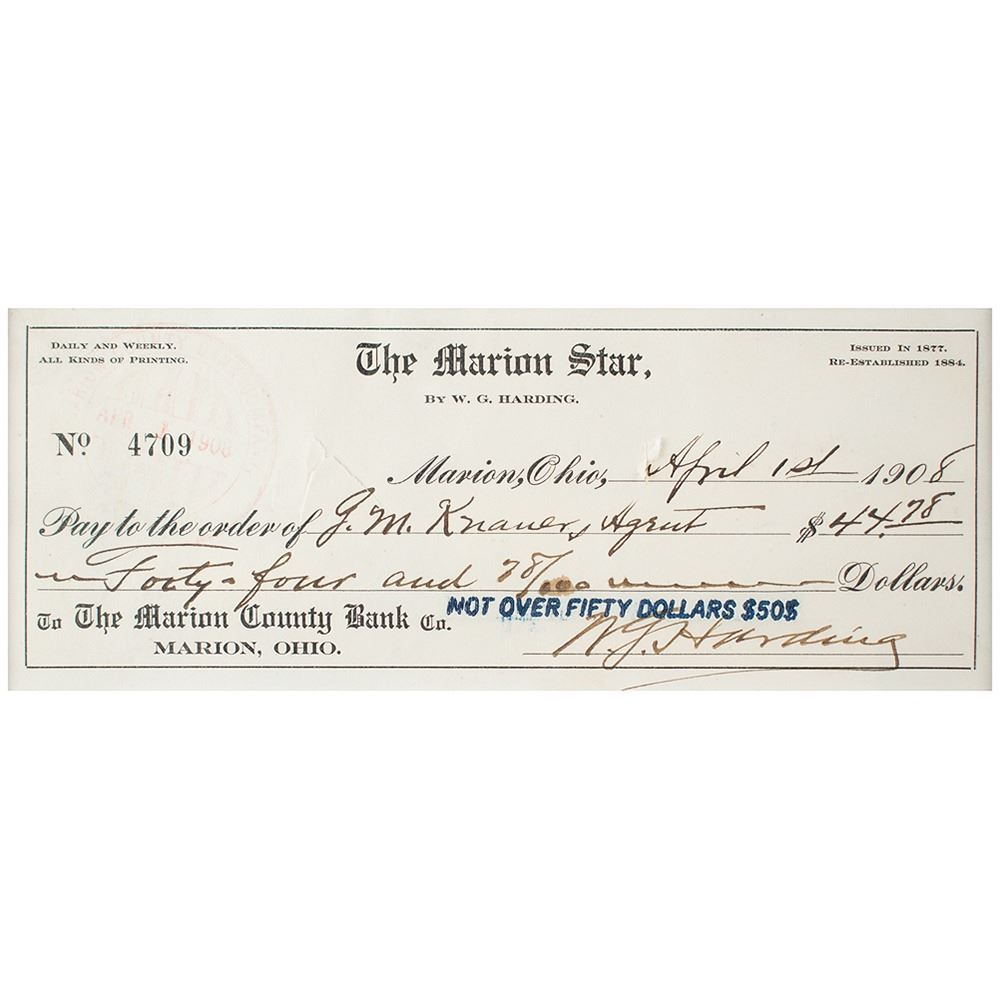 DAILY AND WEEKLY.
ALL KINDS OF PRINTING.
The Marion Star,
BY W. G. HARDING.
ISSUED IN 1877.
RE-ESTABLISHED 1884.
No 4709
APR 1908
Marion, Ohio, April 1st 1908
Pay to the order of J. M. Knauer, Agent $44.78
Forty-four and 78/100 Dollars.
To The Marion County Bank Co.
MARION, OHIO.
NOT OVER FIFTY DOLLARS $50$
W. G. Harding